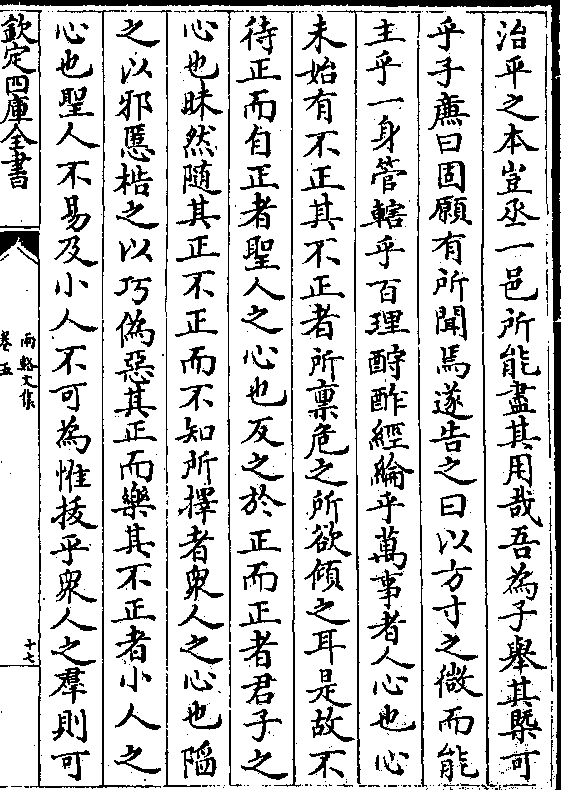 治平之本豈丞一邑所能盡其用哉吾為子舉其槩可
乎子廌曰固願有所聞焉遂告之曰以方寸之微而能
主乎一身管轄乎百理酧酢經綸乎萬事者人心也心
未始有不正其不正者所稟危之所欲傾之耳是故不
待正而自正者聖人之心也反之於正而正者君子之
心也昧然隨其正不正而不知所擇者衆人之心也陷
之以邪慝梏之以巧偽惡其正而樂其不正者小人之
心也聖人不易及小人不可為惟拔乎衆人之羣則可
欽定四庫全書
卷五
十七